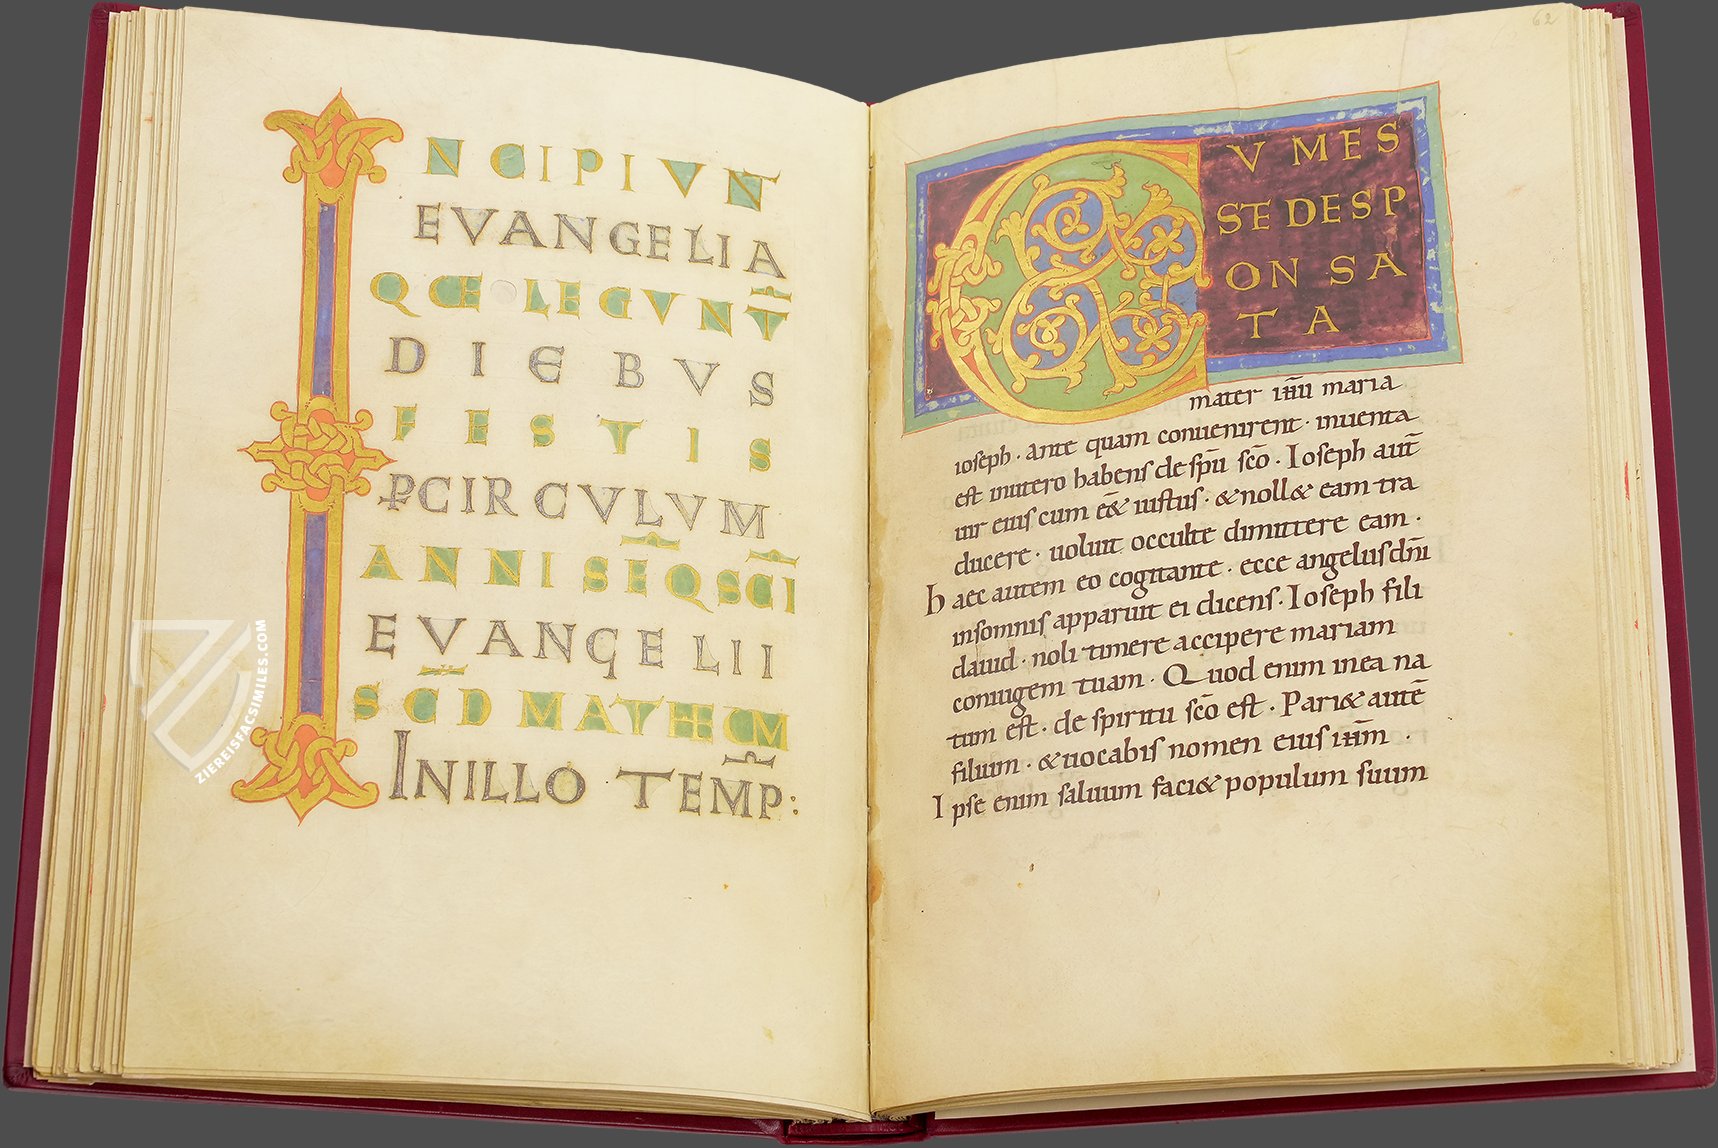 INCIPIUNT
EVANGELIA
QUE LEGUNT̄
DIEBUS
FESTIS
ꝑCIRCULUM
ANNI SEQ̄ SCĪ
EVANGELII
SC̄D MATHEUM
INILLO TEMP̄:
ZIEREISFACSIMILES.COM
62
CUMES
SEDESP
ONSA
TA
mater ih̄u maria
ioseph · ante quam conuenirent · inuenta
est inutero habens despū scō · Ioseph aut̄
uir eius cum eēt iustus · &noll& eam tra
ducere · uoluit occulte dimittere eam ·
haec autem eo cogitante · ecce angelusdn̄i
insomnis apparuit ei dicens · Ioseph fili
dauid · noli timere accipere mariam
coniugem tuam · Quod enim inea na
tum est · de spiritu scō est · Pari& autē
filium · &uocabis nomen eius ih̄m ·
Ipse enim saluum faci& populum suum